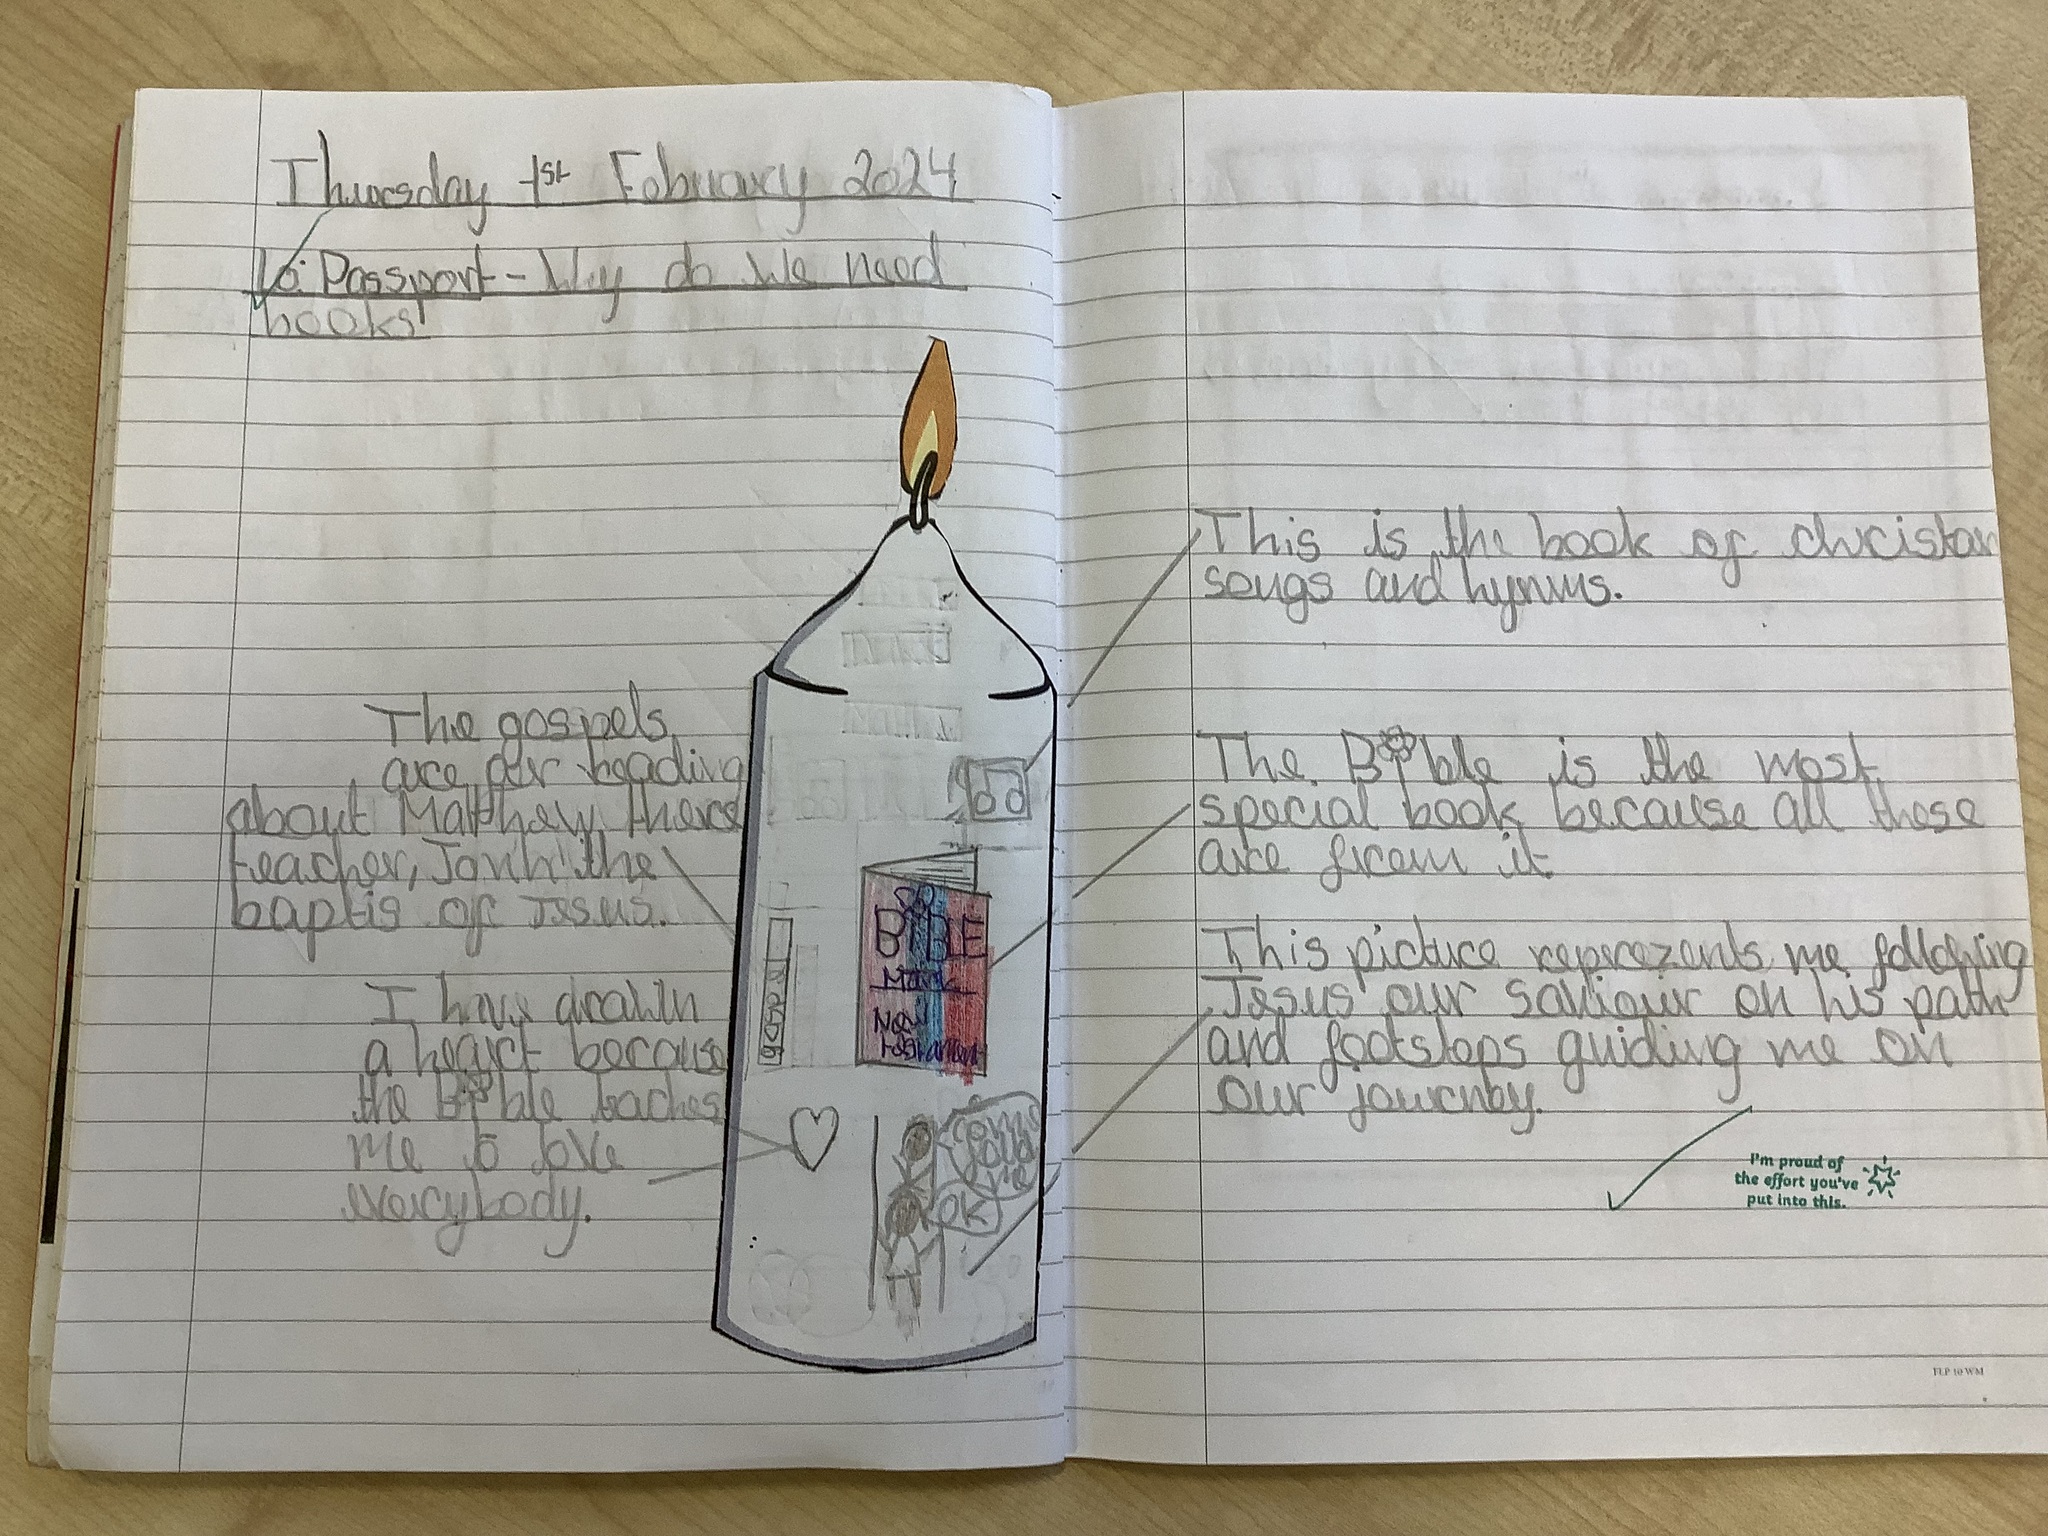 Thursday 1st February 2024
Lo: Passport - Why do we need
books
The gospels
are for reading
about Matthew there
teacher, Jonh the
baptis of Jesus.
I have drawn
a heart because
the Bible teaches
me to love
everybody.
gospel
BIBLE
Mark
New
testament
come
follow
me
OK
This is the book of christan
songs and hymns.
The Bible is the most
special book because all these
are from it
This picture reprezents me following
Jesus our saviour on his path
and footsteps guiding me on
our journey.
I'm proud of
the effort you've
put into this.
FLP 10 WM